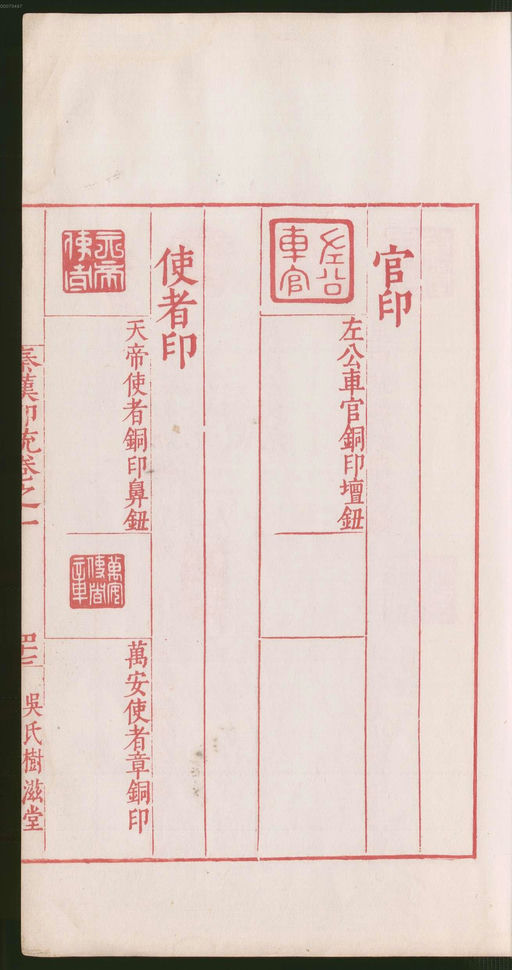 官印
左公車官
左公車官銅印壇鈕
使者印
天帝使者
天帝使者銅印鼻鈕
萬安使者章
萬安使者章銅印
秦漢印統卷之一
吳氏樹滋堂
00079487